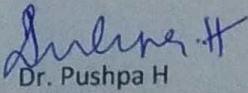 Dr. Pushpa H